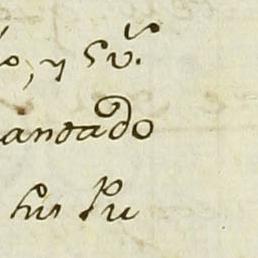 o, y Sũ.
andado
sus Pu